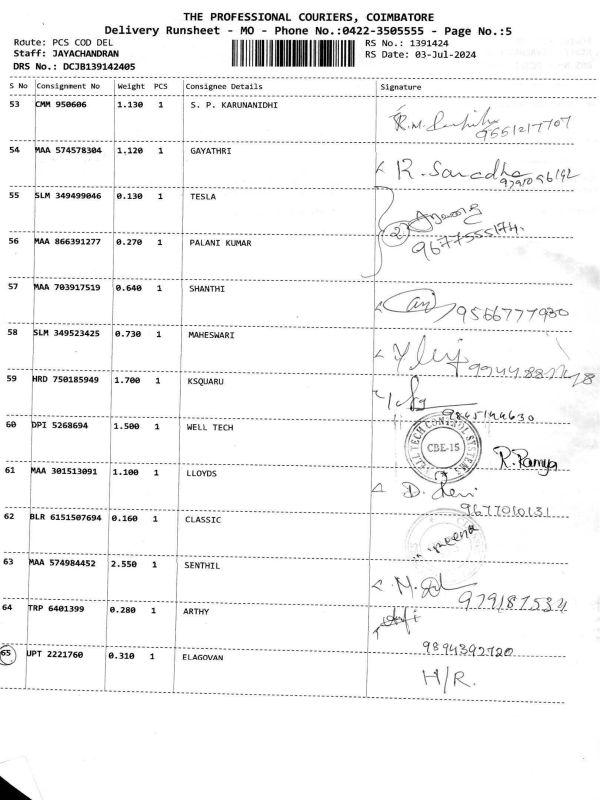 THE PROFESSIONAL COURIERS, COIMBATORE
Delivery Runsheet - MO - Phone No.:0422-3505555 - Page No.:5
Route: PCS COD DEL RS No.: 1391424
Staff: JAYACHANDRAN RS Date: 03-Jul-2024
DRS No.: DCJB139142405
S No Consignment No Weight PCS Consignee Details Signature
53 CMM 950606 1.130 1 S. P. KARUNANIDHI
9551217707
54 MAA 574578304 1.120 1 GAYATHRI R. Saradha
55 SLM 349499046 0.130 1 TESLA
2
56 MAA 866391277 0.270 1 PALANI KUMAR 9677555174.
57 MAA 703917519 0.640 1 SHANTHI
9566777980
58 SLM 349523425 0.730 1 MAHESWARI
59 HRD 750185949 1.700 1 KSQUARU
60 DPI 5268694 1.500 1 WELL TECH WELL TECH CONTROL SYSTEMS CBE-15 R. Ramya
61 MAA 301513091 1.100 1 LLOYDS D. Devi
9677010131
62 BLR 6151507694 0.160 1 CLASSIC
63 MAA 574984452 2.550 1 SENTHIL
64 TRP 6401399 0.280 1 ARTHY
9894392720
65 UPT 2221760 0.310 1 ELAGOVAN H/R.